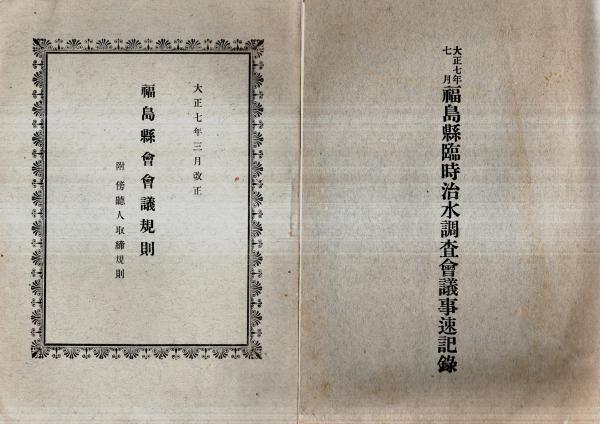 大正七年
七月
福島縣臨時治水調査會議事速記錄
大正七年三月改正
福島縣會會議規則
附 傍聽人取締規則